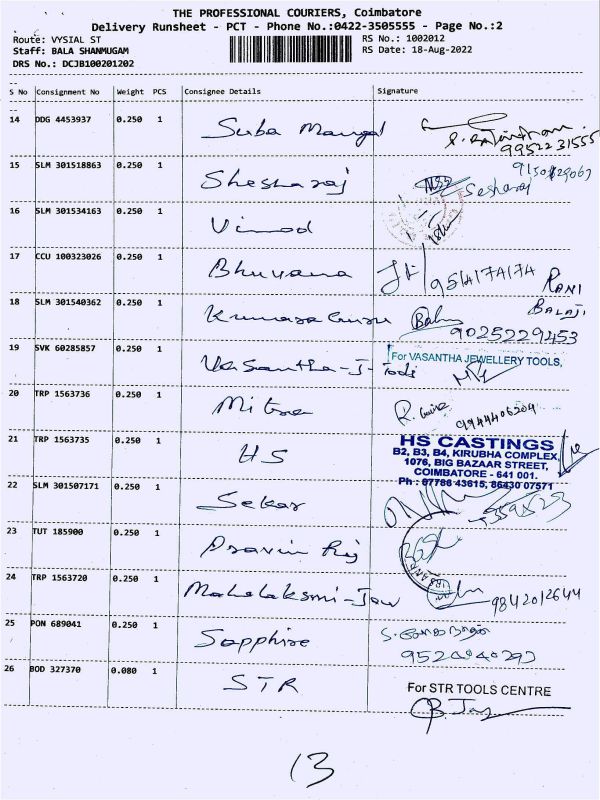 THE PROFESSIONAL COURIERS, Coimbatore
Delivery Runsheet - PCT - Phone No.:0422-3505555 - Page No.:2
Route: VYSIAL ST RS No.: 1002012
Staff: BALA SHANMUGAM RS Date: 18-Aug-2022
DRS No.: DCJB100201202
S No Consignment No Weight PCS Consignee Details Signature
14 DDG 4453937 0.250 1 Suba Mangal
9952231555
15 SLM 301518863 0.250 1 Shesharaj Sesharaj
16 SLM 301534163 0.250 1 Vinod
17 CCU 100323026 0.250 1 Bhuvana 9514174174 RANI
18 SLM 301540362 0.250 1 Kumaraguru BALAJI
9025229453
19 SVK 60285857 0.250 1 Vasantha-J-Tools For VASANTHA JEWELLERY TOOLS,
20 TRP 1563736 0.250 1 Mitra 9944406204
21 TRP 1563735 0.250 1 HS HS CASTINGS
B2, B3, B4, KIRUBHA COMPLEX,
1076, BIG BAZAAR STREET,
COIMBATORE - 641 001.
Ph : 87786 43615, 86430 07571
22 SLM 301507171 0.250 1 Sekar
23 TUT 185900 0.250 1 Pravin Raj
24 TRP 1563720 0.250 1 Mahalakshmi-Jew 9842012644
25 PON 689041 0.250 1 Sapphire
26 BOD 327370 0.080 1 STR For STR TOOLS CENTRE
13